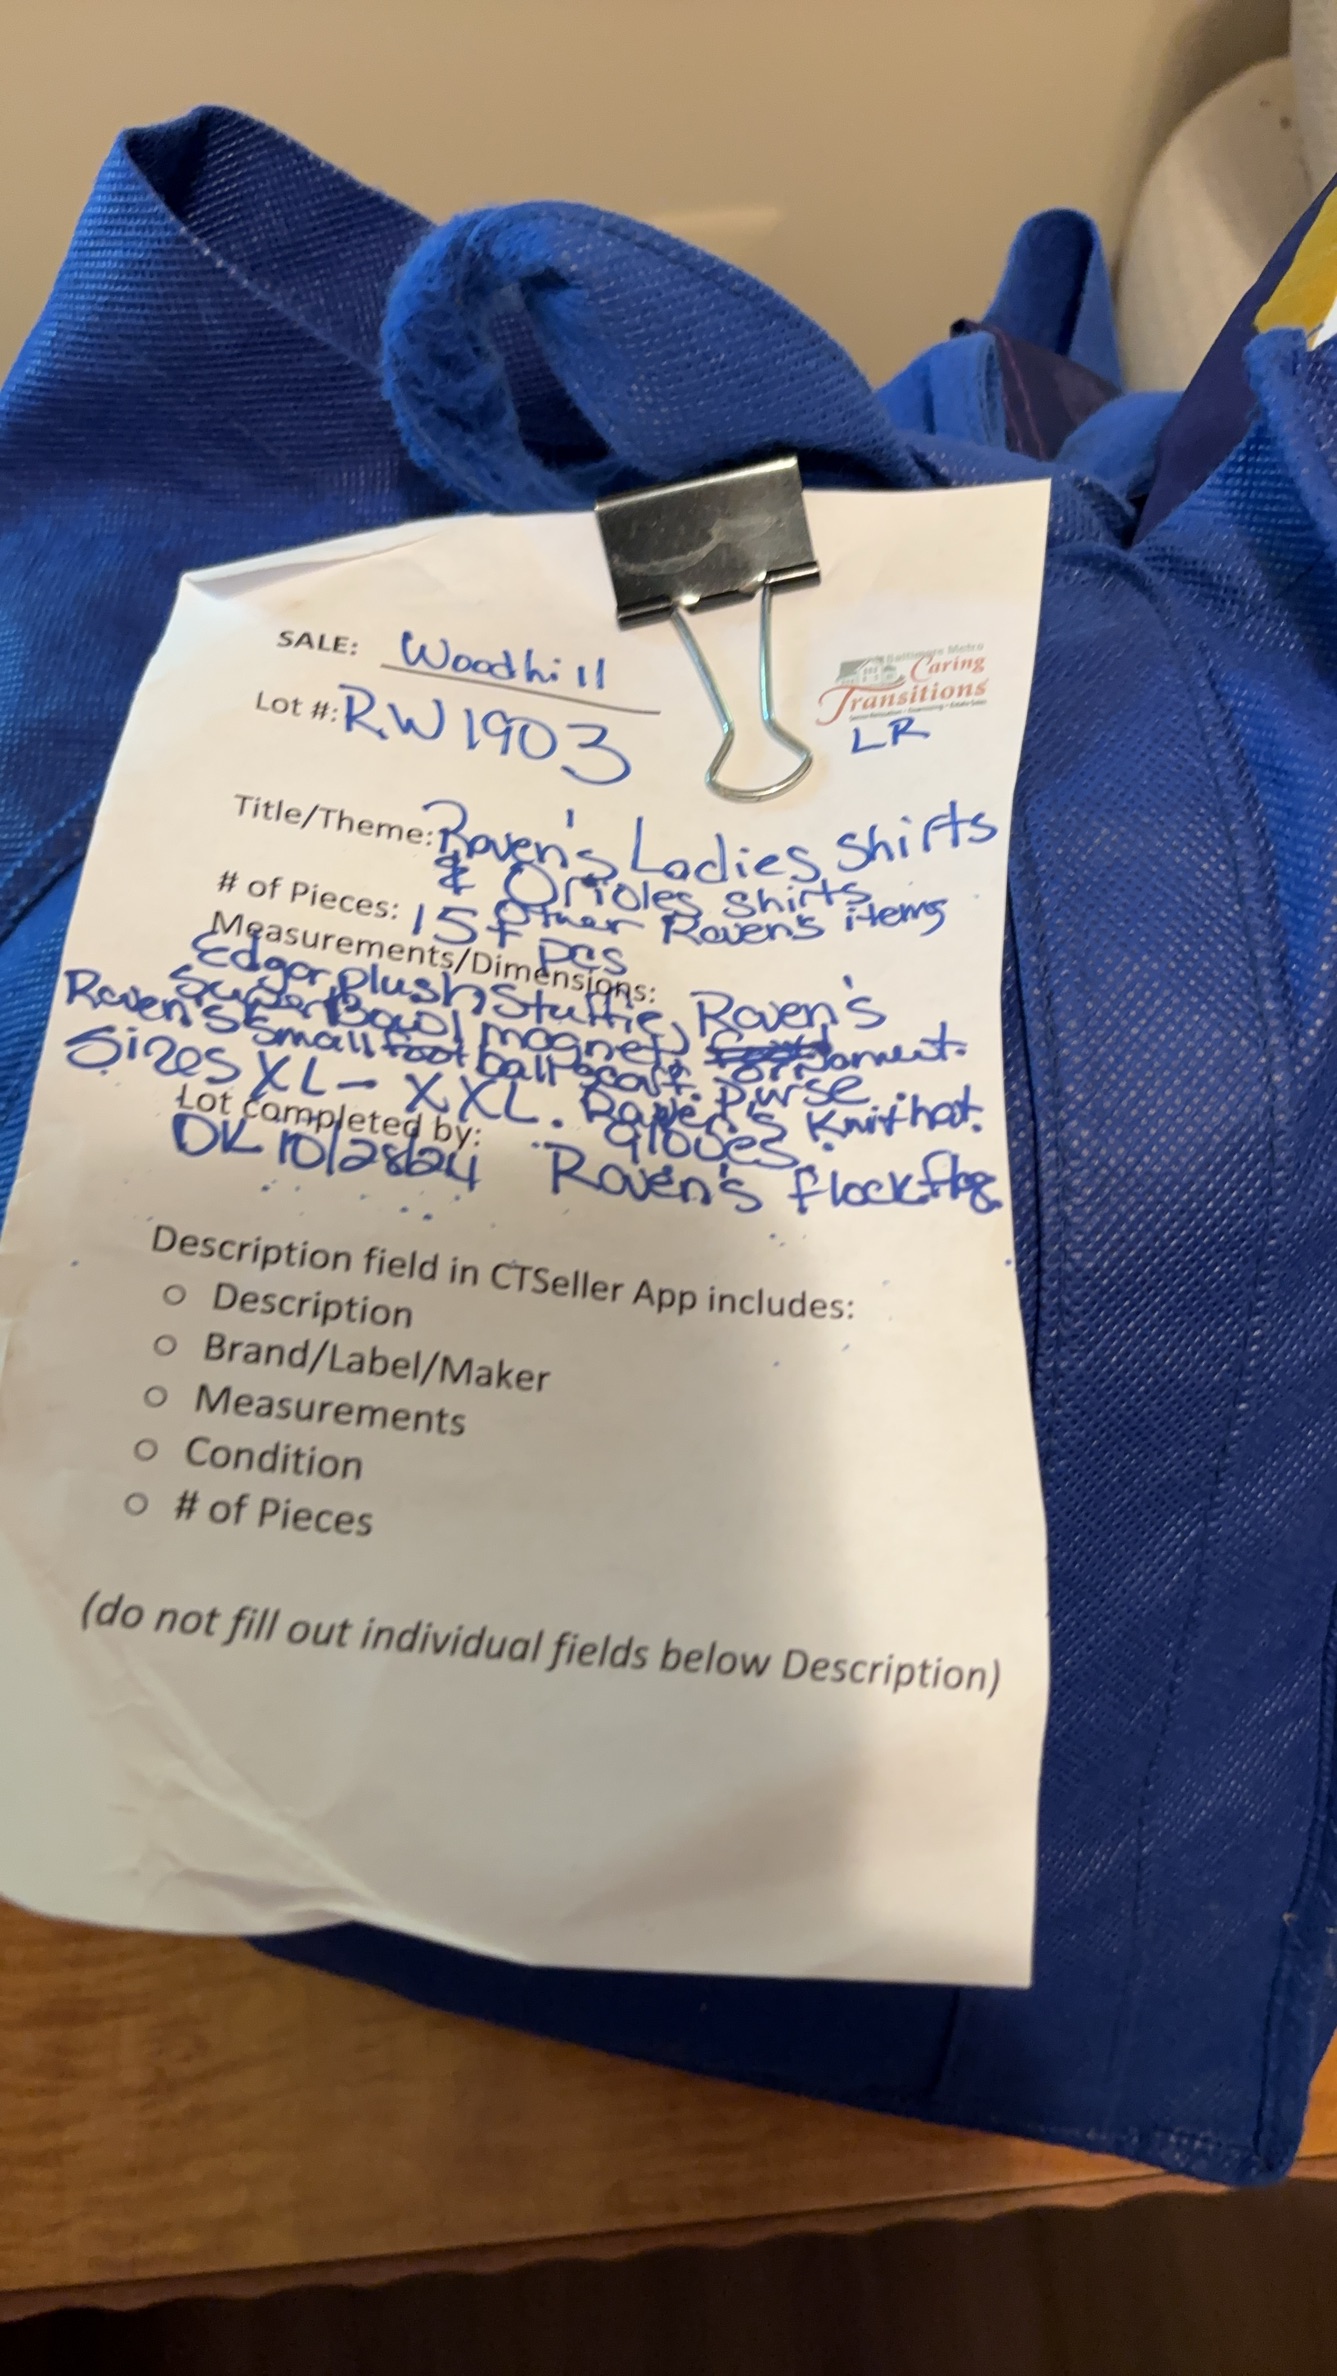 SALE: Woodhill
Baltimore Metro
Caring
Transitions
Lot #: RW1903
LR
Title/Theme: Raven's Ladies Shirts
& Orioles shirts
# of Pieces: 15+ pcs
Other Raven's items
Measurements/Dimensions:
Edgar plush stuffie, Raven's
Super Bowl magnet, ornament.
Raven's small football scarf. purse.
Sizes XL - XXL. Raven's Knit hat.
gloves.
Lot completed by:
DK 10/28/24 Raven's flock flag
Description field in CTSeller App includes:
○ Description
○ Brand/Label/Maker
○ Measurements
○ Condition
○ # of Pieces
(do not fill out individual fields below Description)